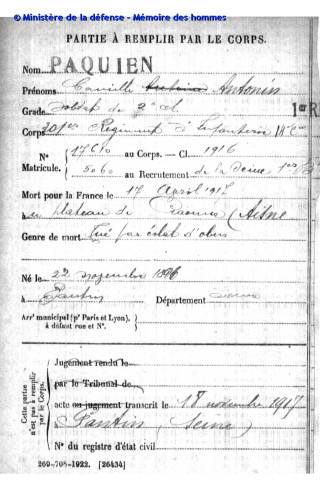 © Ministère de la défense - Mémoire des hommes
PARTIE À REMPLIR PAR LE CORPS.
Nom PAQUIEN
Prénoms Camille Antonin Antonin
Grade Soldat de 2e cl
Corps Régiment d'Infanterie
N° Matricule. 17610 au Corps. — Cl. 1916
5060 au Recrutement de la Seine 1er B
Mort pour la France le 17 Avril 1917
au plateau de Craonne (Aisne
Genre de mort Tué par éclat d'obus
Né le 22 novembre 1896
à Pantin Département Seine
Arrt municipal (pr Paris et Lyon),
à défaut rue et N°.
Cette partie n'est pas à remplir par le Corps.
Jugement rendu le
par le Tribunal de
acte ou jugement transcrit le 18 novembre 1917
à Pantin (Seine)
N° du registre d'état civil
269-708-1922. [26434]